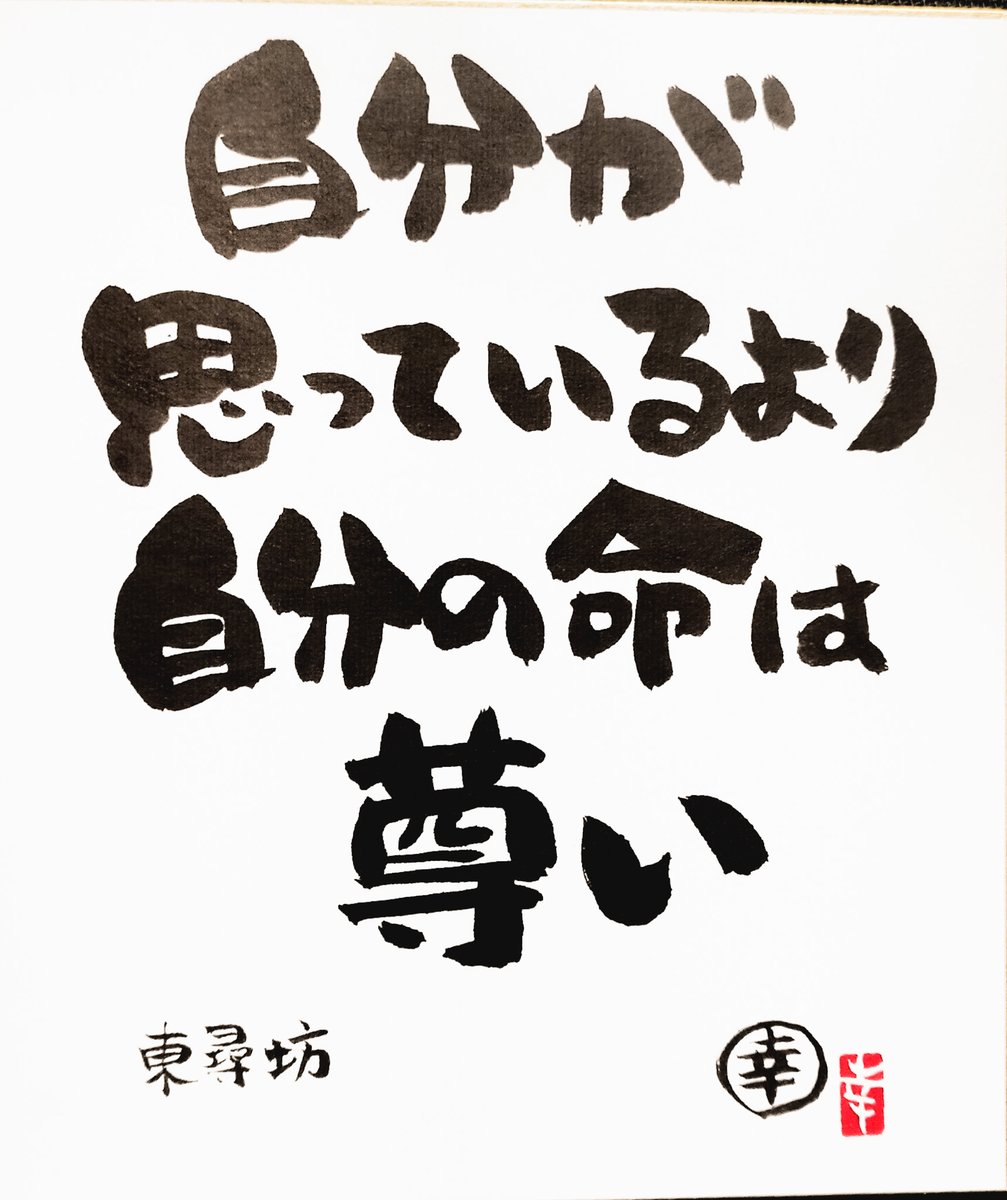 自分が
思っているより
自分の命は
尊い
東尋坊
幸
幸